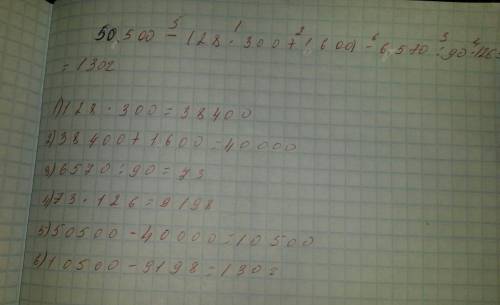 50.500 - (128 · 300 + 1.600) - 6.570 : 90 · 126 =
= 1302
1) 128 · 300 = 38400
2) 38400 + 1.600 = 40000
3) 6570 : 90 = 73
4) 73 · 126 = 9198
5) 50500 - 40000 = 10500
6) 10500 - 9198 = 1302